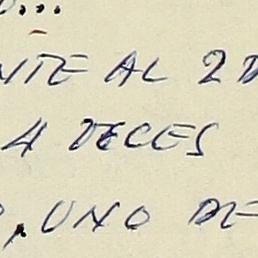 ...
NTE AL 2 D
4 VECES
, UNO DE